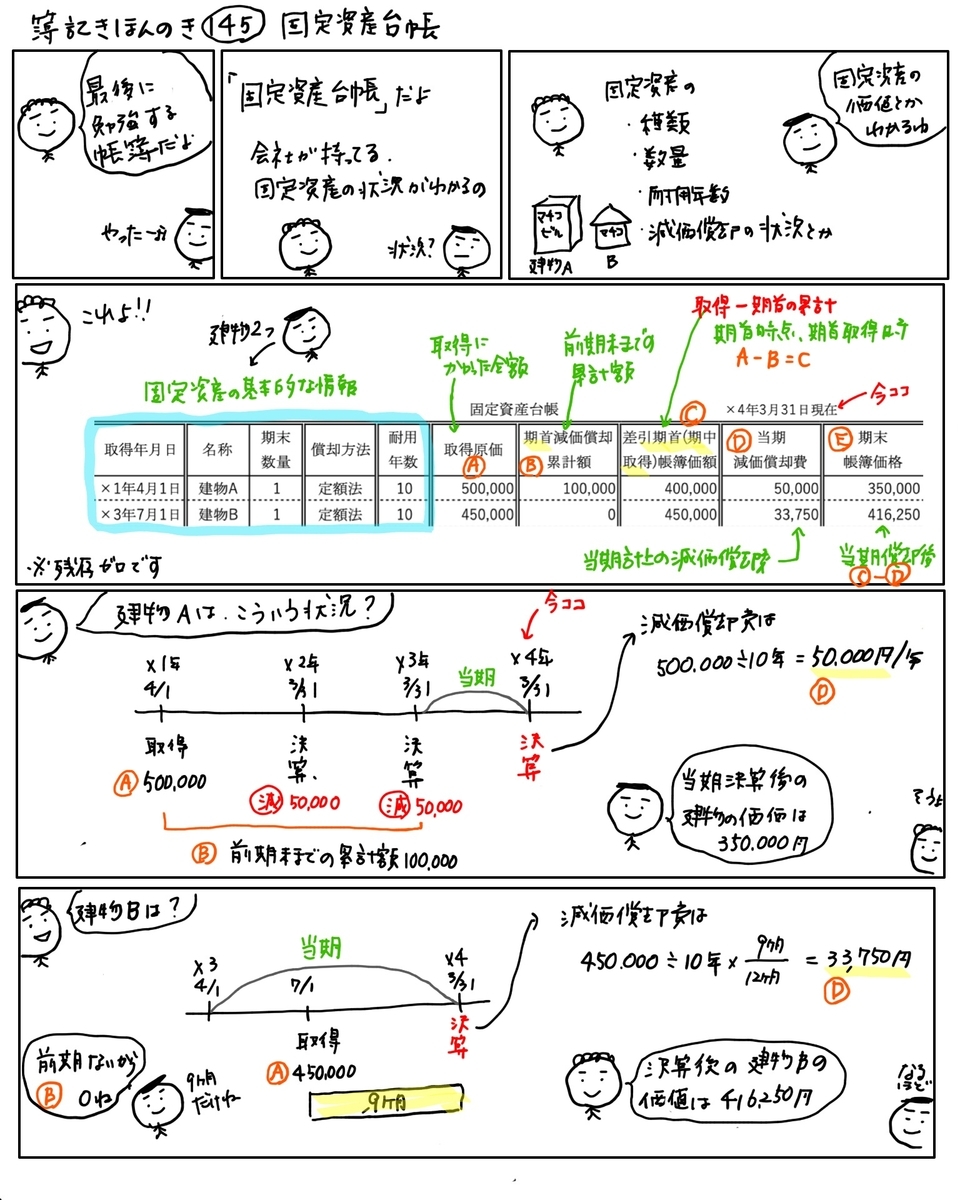 簿記きほんのき 145 固定資産台帳
最後に
勉強する
帳簿だよ
やったーぉ
「固定資産台帳」だよ
会社が持ってる.
固定資産の状況がわかるの
状況?
固定資産の
・種類
・数量
・耐用年数
・減価償却の状況とか
マチコ
ビル
マチコ
建物A
B
固定資産の
価値とか
わかるね
これよ!!
建物2つ
固定資産の基本的な情報
取得に
かかった金額
前期末までの
累計額
取得ー期首の累計
期首時点、期首取得は千
A-B=C
固定資産台帳
C
×4年3月31日現在
今ココ
取得年月日 名称 期末数量 償却方法 耐用年数 取得原価 A 期首減価償却累計額 B 差引期首(期中取得)帳簿価額 D 当期減価償却費 E 期末帳簿価格
×1年4月1日 建物A 1 定額法 10 500,000 100,000 400,000 50,000 350,000
×3年7月1日 建物B 1 定額法 10 450,000 0 450,000 33,750 416,250
※残存ゼロです
当期計上の減価償却費
当期償却後
C-D
建物Aは、こういう状況?
今ココ
×1年
4/1
×2年
3/31
×3年
3/31
当期
×4年
3/31
取得
決算.
決算
決算
A 500,000
減 50,000
減 50,000
B 前期末までの累計額100,000
減価償却費は
500.000÷10年=50.000円/年
D
当期決算後の
建物の価価は
350.000円
そうよ
建物Bは?
当期
×3
4/1
7/1
×4
3/31
取得
決算
A 450,000
9ヶ月
前期ないから
B 0ね
9ヶ月
だけね
減価償却費は
450.000÷10年×9ヶ月/12ヶ月=33,750円
D
決算後の建物Bの
価値は416,250円
なる
ほど